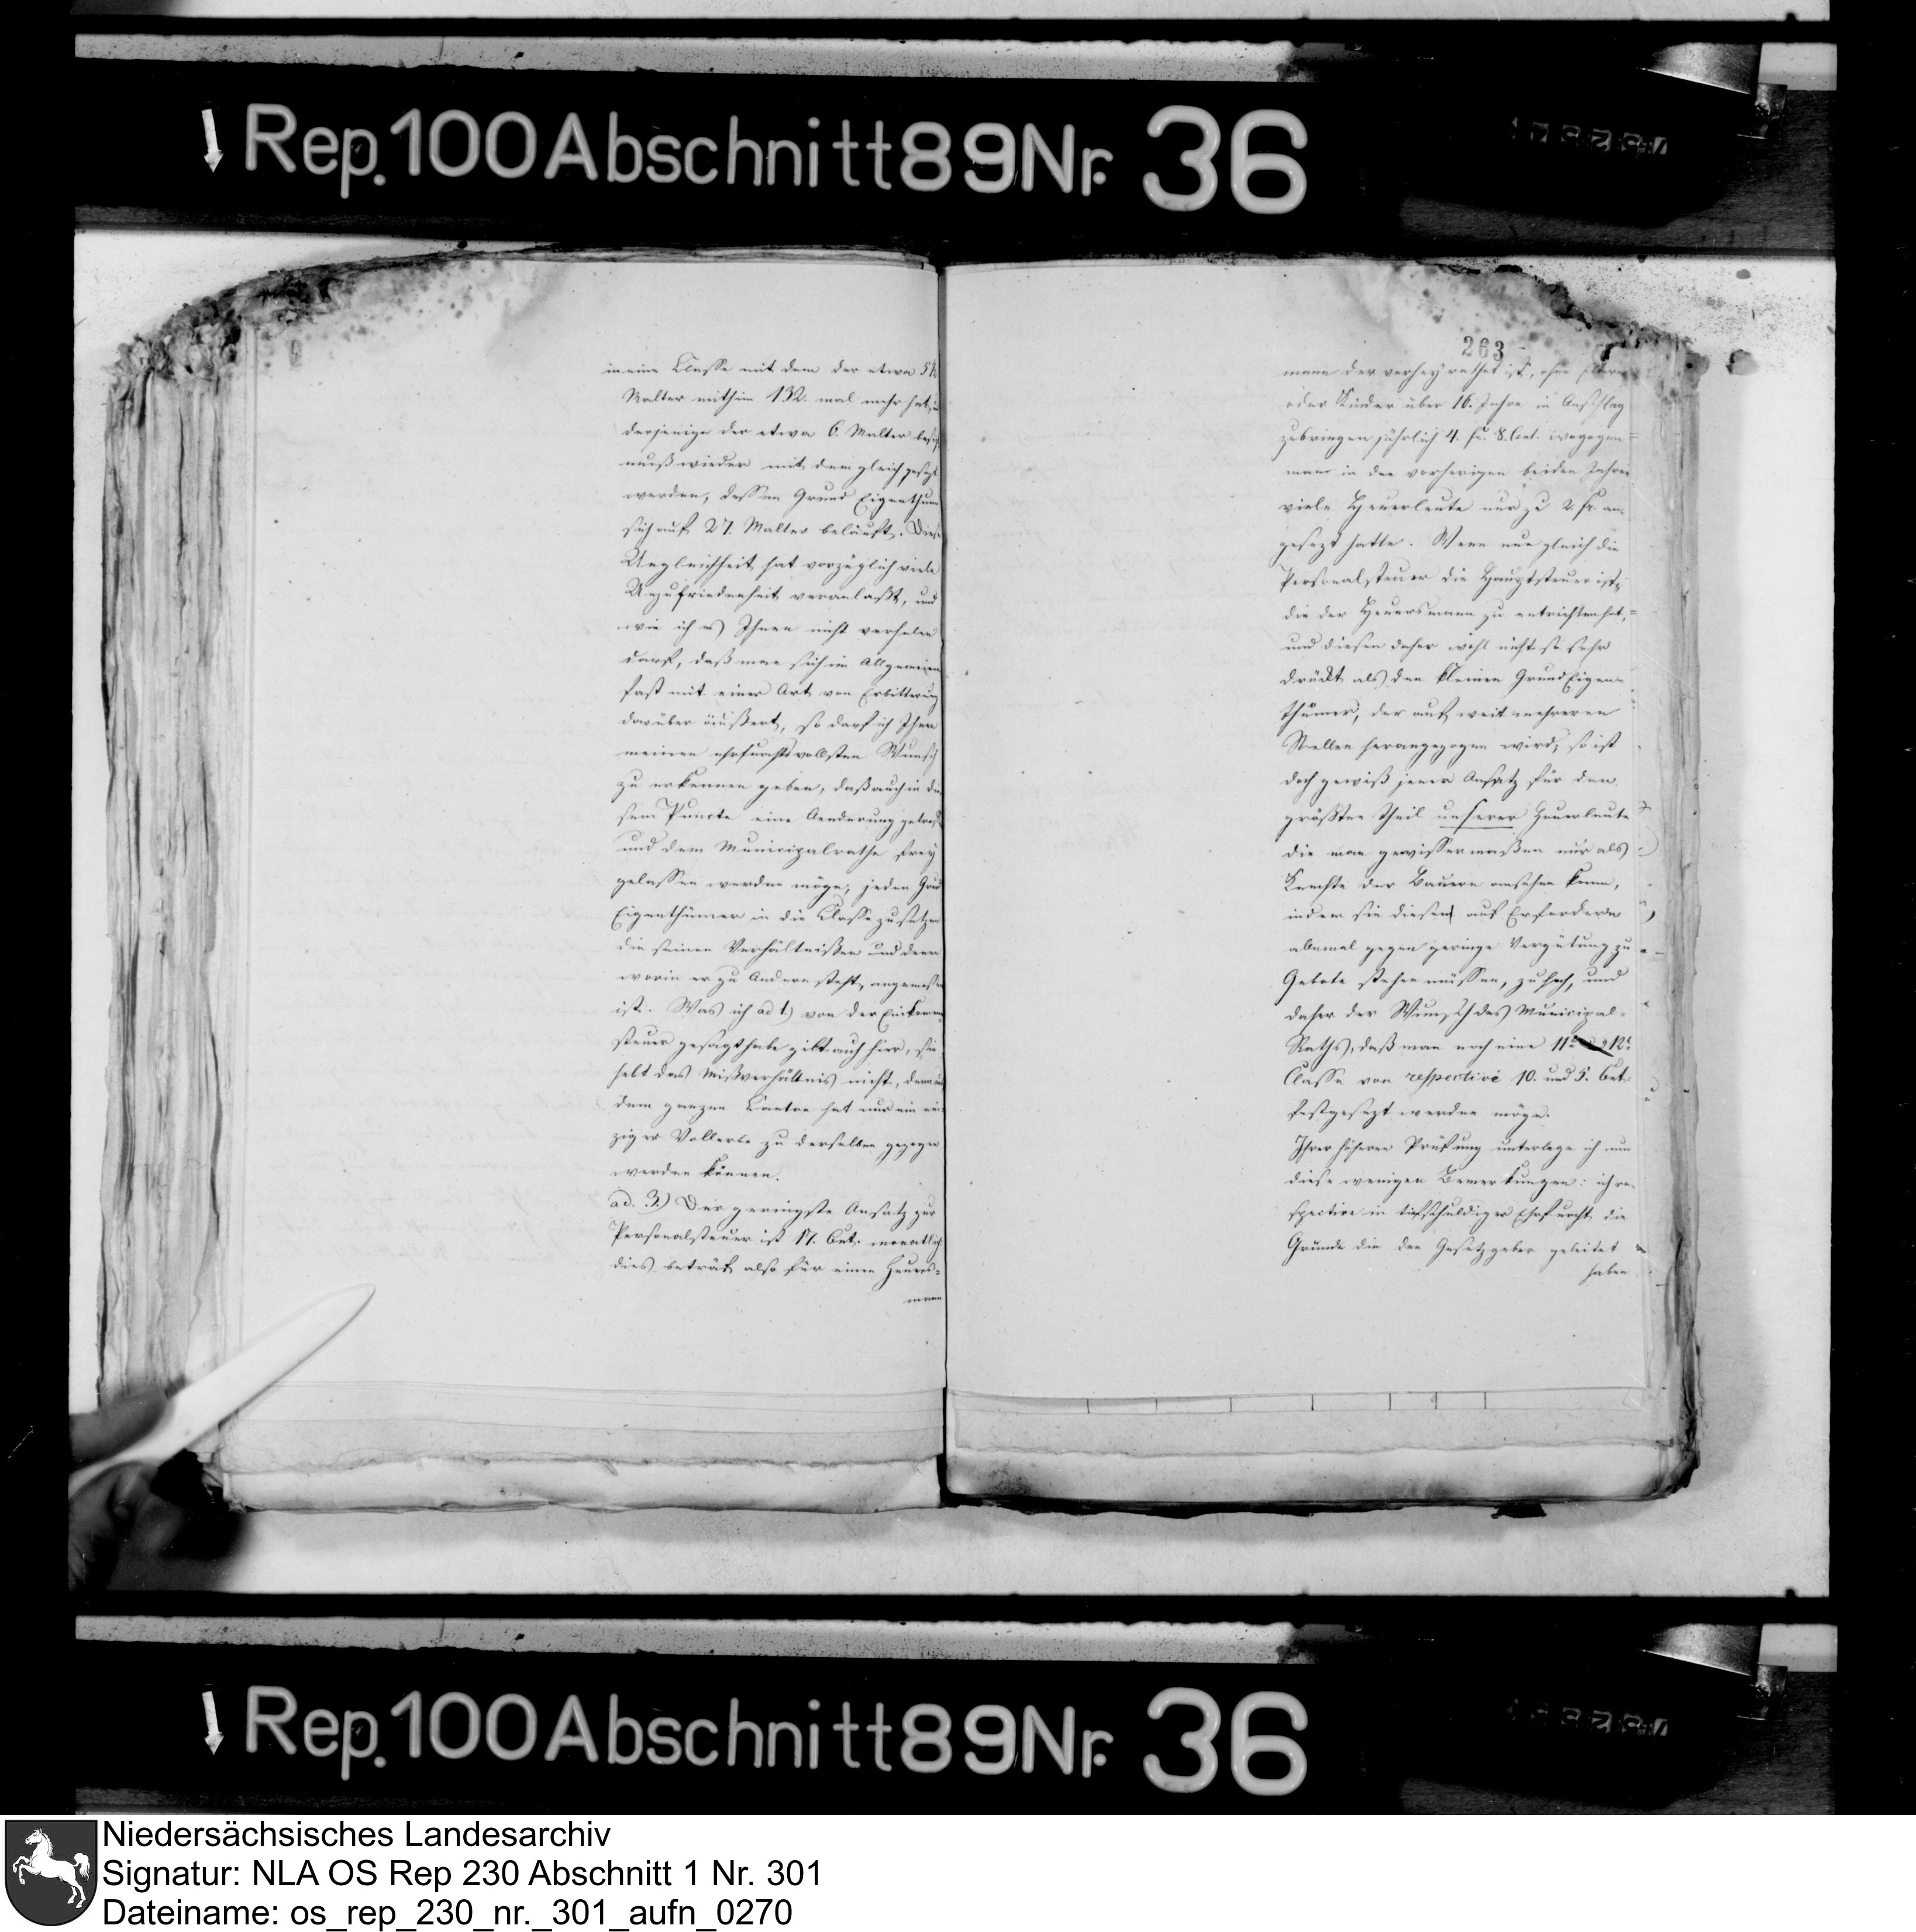 Rep. 100 Abschnitt 89 Nr. 36
in eine Classe mit dem der etwa
Malter mithin 132. mal mehr hat,
derjenige der etwa 6. Malter
muß wieder mit dem gleich gesezt
werden, dessen Grund Eigenthum
sich auf 27. Malter beläuft. Diese
Ungleichheit hat vorzüglich viele
Unzufriedenheit veranlaßt, und
wie ich es Ihnen nicht verhelen
darf, daß man sich im Allgemeinen
fast mit einer Art von Erbitterung
darüber äußert, so darf ich Ihnen
meinen ehrfurchtsvollsten Wunsch
zu erkennen geben, daß auch in die
sem Puncte eine Aenderung
und dem Municipalrathe frey
gelassen werden möge, jeden Grund
Eigenthümer in die Classe zu setzen
die seinen Verhältnißen und denen
worin er zu Andern steht, angemessen
ist. Was ich ad 1.) von der Einkommen
steuer gesagt habe gilt auch hier, sie
hebt das Mißverhältnis nicht, denn aus
dem ganzen Canton hat nur ein ein
ziger Vollerbe zu derselben gezogen
werden können.
ad. 3.) Der geringste Ansatz zur
Personalsteuer ist 17. Cent. monatlich
dies beträgt also für einen Heuers=
mann
263
mann der verheyrathet ist, ohne
oder Kinder über 16. Jahre in Anschlag
zubringen jährlich 4. fr. 8. Cent. wogegen
man in den vorherigen beiden Jahren
viele Heuerleute nur zu 2. fr. an
gesezt hatte. Wenn nun gleich die
Personalsteuer die Hauptsteuer ist,
die der Heuersmann zu entrichten hat,
und diesen daher wohl nicht so sehr
drückt als den kleinen Grund Eigen=
thümer, der auf weit mehreren
Stellen herangezogen wird, so ist
doch gewiß jener Ansatz für den
größten Theil unserer Heuerleute
die man gewissermaßen nur als
Knechte der Bauern ansehen kann,
indem sie diesen auf Erfordern
allemal gegen geringe Vergütung zu
Gebote stehen müssen, zu hoch, und
daher der Wunsch des Municipal=
Raths, daß man noch eine 11te 12te
Classe von respective 10. und 5. Cent.
festgesezt werden möge.
Ihrer höheren Prüfung unterlege ich nun
diese wenigen Bemerkungen: ich re=
spective in tiefschuldiger Ehrfurcht die
Gründe die den Gesetzgeber geleitet
haben
Rep. 100 Abschnitt 89 Nr. 36
Niedersächsisches Landesarchiv
Signatur: NLA OS Rep 230 Abschnitt 1 Nr. 301
Dateiname: os_rep_230_nr._301_aufn_0270